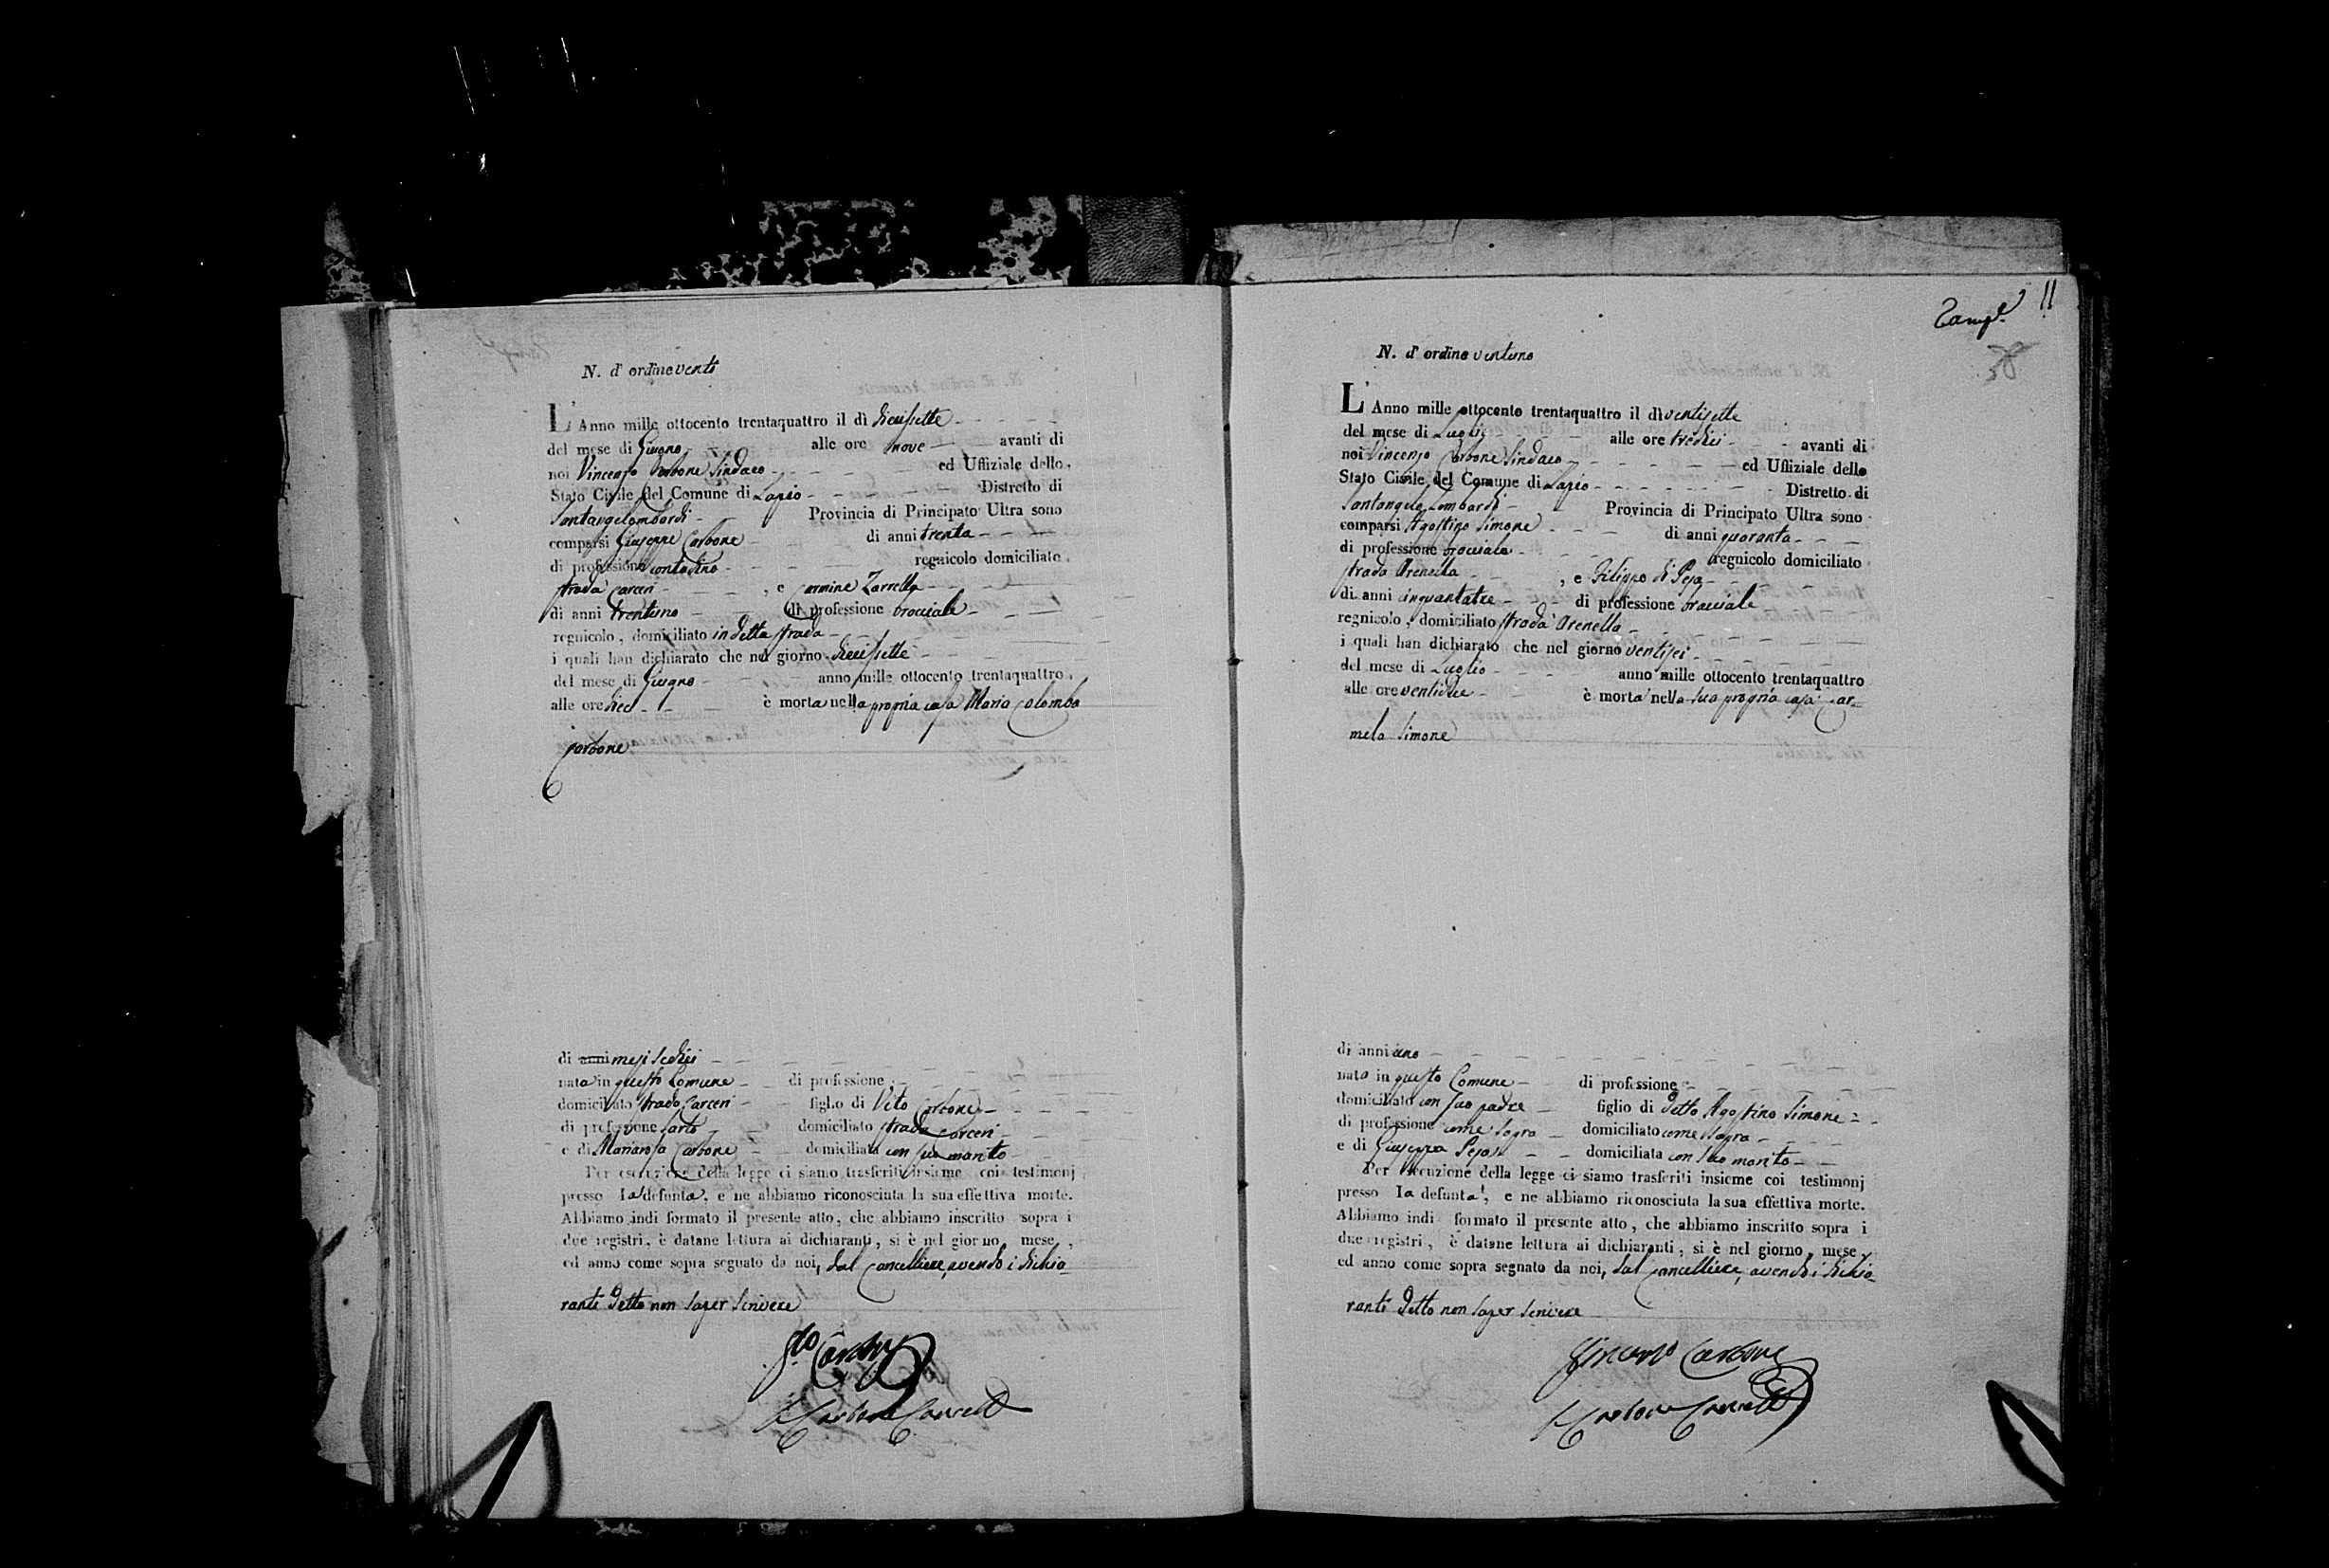 N. d' ordine venti
L' Anno mille ottocento trentaquattro il dì diecissette
del mese di Giugno alle ore nove avanti di
noi Vincenzo Carbone Sindaco ed Uffiziale dello
Stato Civile del Comune di Lapio Distretto di
Santangelombardi Provincia di Principato Ultra sono
comparsi Giuseppe Carbone di anni trenta
di professione contadino regnicolo domiciliato
strada Carceri , e Carmine Zarrella
di anni trentuno di professione bracciale
regnicolo, domiciliato in detta strada
i quali han dichiarato che nel giorno diecissette
del mese di Giugno anno mille ottocento trentaquattro
alle ore dieci è morta nella propria casa Maria Colomba
Carbone
di anni mesi sedici
nata in questo Comune di professione
domiciliato strada Carceri figlio di Vito Carbone
di professione sarto domiciliato strada Carceri
e di Mariarosa Carbone domiciliata con suo marito
Per esecuzione della legge ci siamo trasferiti insieme coi testimonj
presso la defunta, e ne abbiamo riconosciuta la sua effettiva morte.
Abbiamo indi formato il presente atto, che abbiamo inscritto sopra i
due registri, è datane lettura ai dichiaranti, si è nel giorno, mese,
ed anno come sopra segnato da noi, dal Cancelliere, avendo i dichia-
ranti detto non saper scrivere
Carbone
Carbone Cancell
Zamp.
11
N. d' ordine ventuno
L' Anno mille ottocento trentaquattro il dì ventisette
del mese di Luglio alle ore tredici avanti di
noi Vincenzo Carbone Sindaco ed Uffiziale dello
Stato Civile del Comune di Lapio Distretto di
Santangelo Lombardi Provincia di Principato Ultra sono
comparsi Agostino Simone di anni quaranta
di professione bracciale regnicolo domiciliato
strada Arenella , e Filippo di Pesa
di anni cinquantatre di professione bracciale
regnicolo, domiciliato strada Arenella
i quali han dichiarato che nel giorno ventisei
del mese di Luglio anno mille ottocento trentaquattro
alle ore ventidue è morta nella sua propria casa Car-
mela Simone
di anni uno
nata in questo Comune di professione
domiciliata con suo padre figlio di detto Agostino Simone
di professione come sopra domiciliato come sopra
e di Giuseppa domiciliata con suo marito
Per esecuzione della legge ci siamo trasferiti insieme coi testimonj
presso la defunta, e ne abbiamo riconosciuta la sua effettiva morte.
Abbiamo indi formato il presente atto, che abbiamo inscritto sopra i
due registri, è datane lettura ai dichiaranti, si è nel giorno, mese,
ed anno come sopra segnato da noi, dal Cancelliere, avendo i dichia-
ranti detto non saper scrivere
Vincenzo Carbone
Carbone Cancell